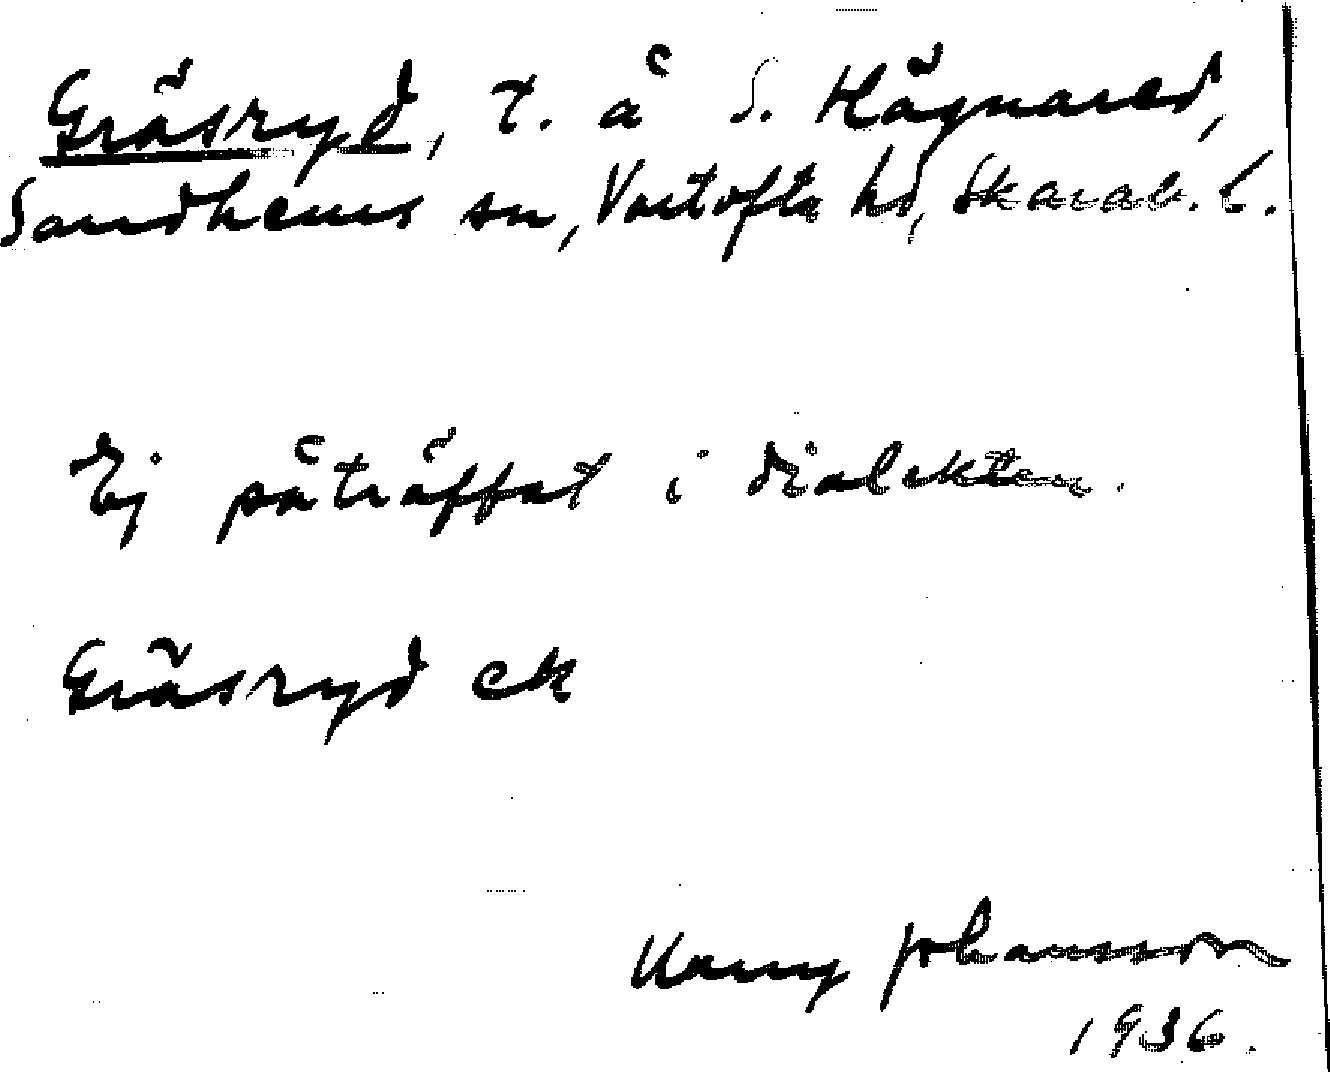 Gräsryd, t. å S. Hägnared,
Sandhems sn, Vartofta hd, Skarab. l.
Ej påträffat i dialekten.
Gräsryd ek
Harry Johansson
1936.